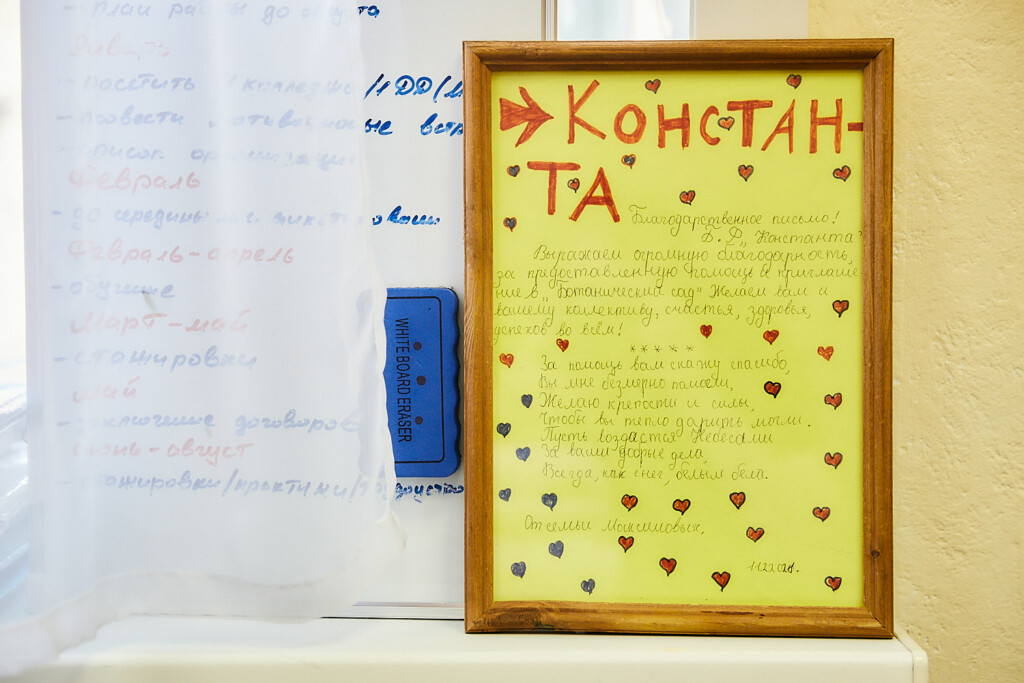 - план работы до августа
Январь
- посетить колледжи/ДД/
- провести мотивационные встр
- список организаций
Февраль
- до середины
Февраль-апрель
- обучение
Март-май
- стажировки
Май
- заключение договоров
Июнь-август
- стажировки/практики/трудоустро
WHITEBOARD ERASER
КОНСТАН-
ТА
Благодарственное письмо!
Б.Ф „Константа"
Выражаем огромную благодарность,
за предоставленную помощь и приглаше-
ние в „Ботанический сад" Желаем вам и
вашему коллективу, счастья, здоровья,
успехов во всём!
* * * * *
За помощь вам скажу спасибо,
Вы мне безмерно помогли,
Желаю крепости и силы,
Чтобы вы тепло дарить могли.
Пусть воздастся Небесами
За ваши добрые дела,
Всегда, как снег, белым бела.
От семьи